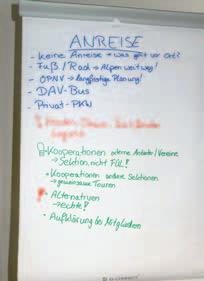 ANREISE
- keine Anreise → was geht vor Ort?
- Fuß / Rad → Alpen weit weg!
- ÖPNV → langfristige Planung!
- DAV-Bus
- Privat-PKW
Kooperationen externe Anbieter / Vereine
→ Sektion, nicht FÜL!
• Kooperationen andere Sektionen
→ gemeinsame Touren
• Alternativen
→ echte!
• Aufklärung bei Mitgliedern